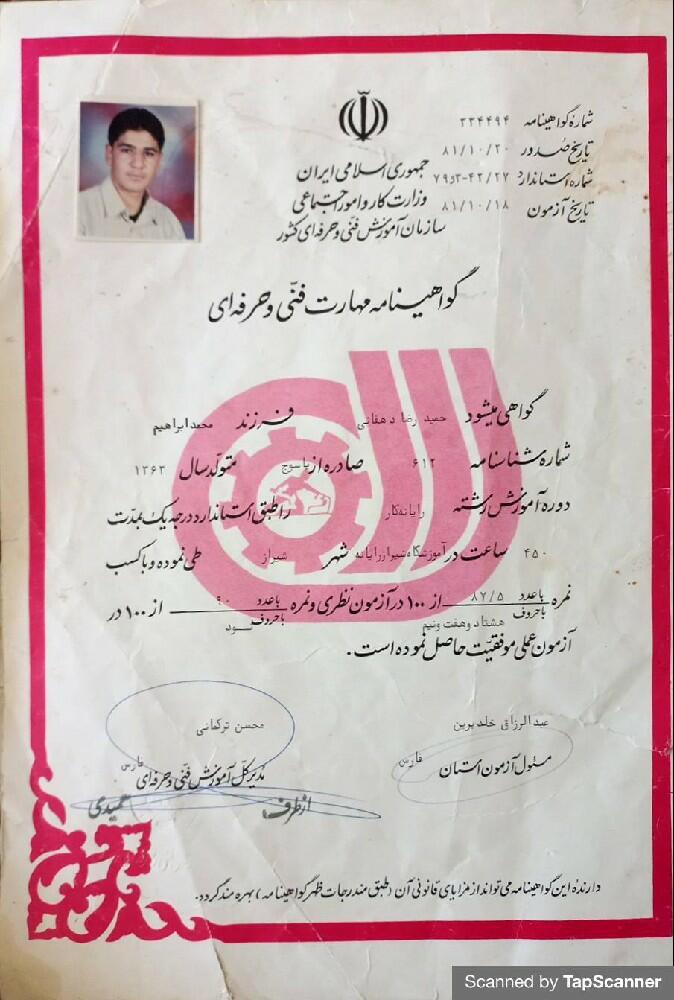 شماره گواهینامه ۳۳۴۴۹۴
تاریخ صدور ۸۱/۱۰/۲۰
شماره استاندارد ۳-۴۲/۲۷و۷۹
تاریخ آزمون ۸۱/۱۰/۱۸
جمهوری اسلامی ایران
وزارت کار و امور اجتماعی
سازمان آموزش فنی و حرفه‌ای کشور
گواهینامه مهارت فنّی و حرفه‌ای
گواهی میشود حمید رضا دهقانی فرزند محمد ابراهیم
شماره شناسنامه ۶۱۲ صادره از یاسوج متولّد سال ۱۳۶۳
دوره آموزش رشته رایانه‌کار را طبق استاندارد درجه یک بمدت
۴۵۰ ساعت در آموزشگاه شیراز رایانه شهر شیراز طی نموده و با کسب
نمره با عدد ۸۷/۵ از ۱۰۰ در آزمون نظری و نمره با عدد ۹۰ از ۱۰۰ در
با حروف هشتاد و هفت ونیم با حروف نــود
آزمون عملی موفقیّت حاصل نموده است.
عبدالرزاق خلد برین
مسئول آزمون استان فارس
محسن ترکمانی
مدیر کل آموزش فنّی و حرفه‌ای فارس
از طرف
دارنده این گواهینامه می‌تواند از مزایای قانونی آن (طبق مندرجات ظهر گواهینامه) بهره مند گردد.
Scanned by TapScanner